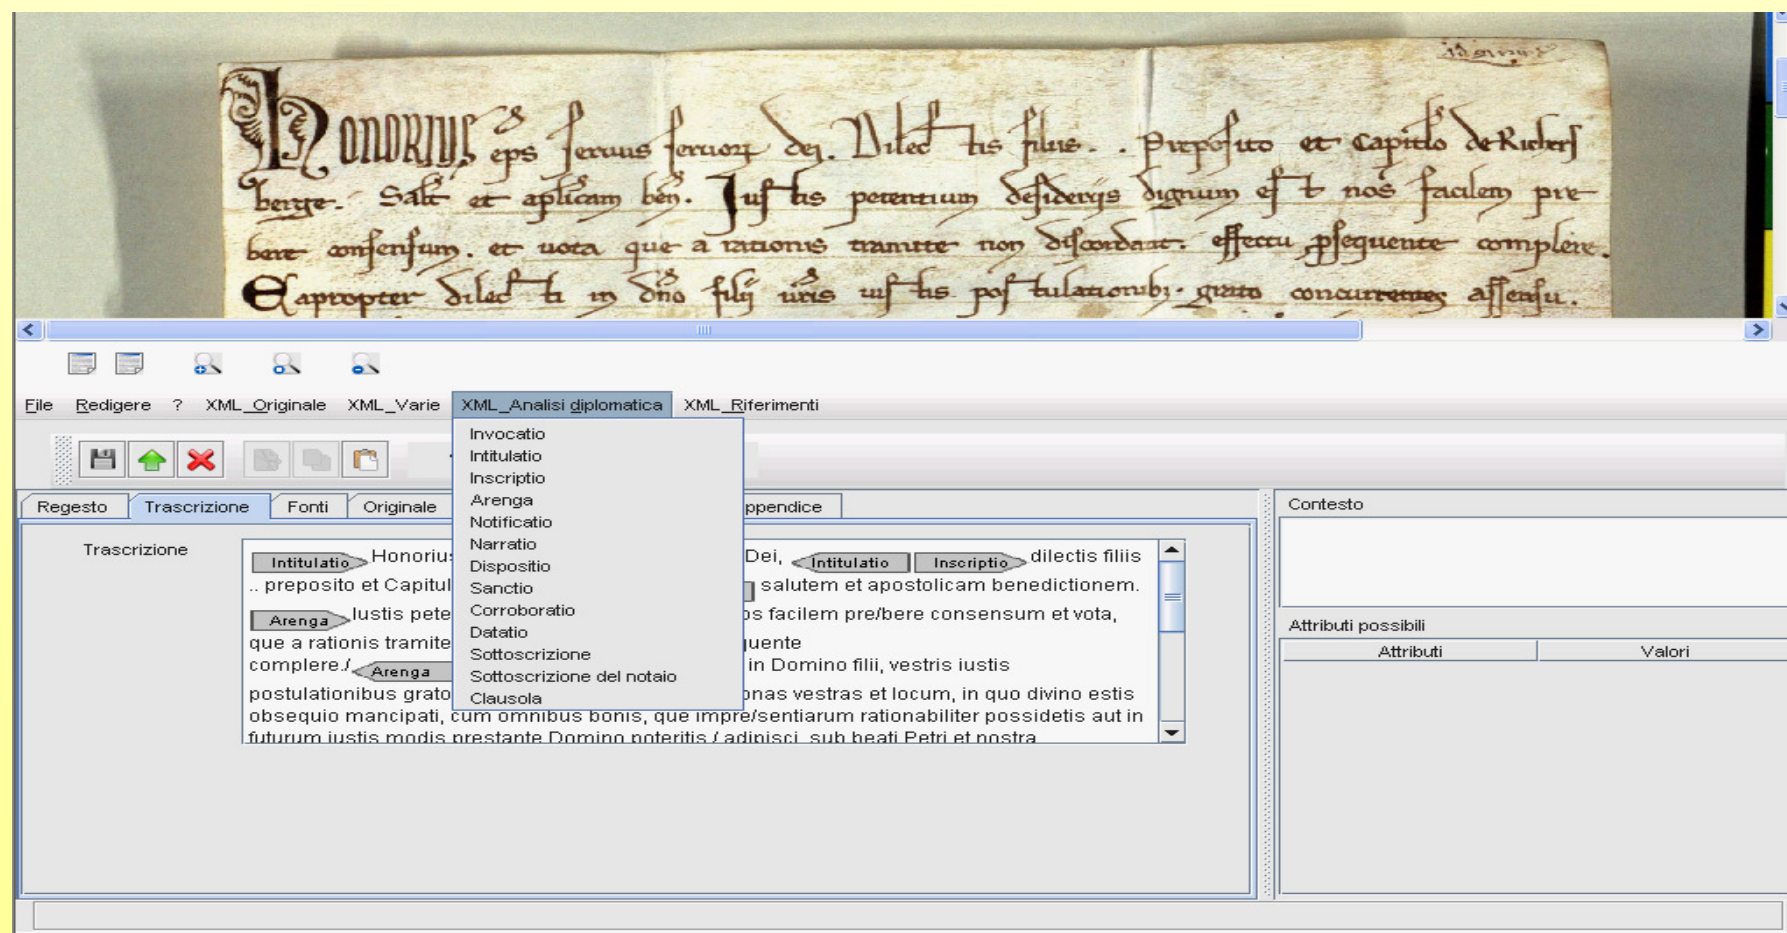 Honorius eps seruus seruor dei. Dilectis filiis . . Preposito et Capitlo de Richers
berge. Salt et aplicam ben. Iustis petentium desideriis dignum est nos facilem pre
bere consensum. et uota que a rationis tramite non discordant. effectu psequente complere.
Eapropter dilecti in dno filii uris iustis postulationib; grato concurrentes assensu.
File Redigere ? XML_Originale XML_Varie XML_Analisi diplomatica XML_Riferimenti
Invocatio
Intitulatio
Inscriptio
Arenga
Notificatio
Narratio
Dispositio
Sanctio
Corroboratio
Datatio
Sottoscrizione
Sottoscrizione del notaio
Clausola
Regesto Trascrizione Fonti Originale ppendice
Trascrizione
Intitulatio Honorius Dei, Intitulatio Inscriptio dilectis filiis
.. preposito et Capitul salutem et apostolicam benedictionem.
Arenga Iustis pete os facilem pre/bere consensum et vota,
que a rationis tramite quente
complere./ Arenga in Domino filii, vestris iustis
postulationibus grato onas vestras et locum, in quo divino estis
obsequio mancipati, cum omnibus bonis, que impre/sentiarum rationabiliter possidetis aut in
futurum iustis modis prestante Domino poteritis / adipisci, sub beati Petri et nostra
Contesto
Attributi possibili
Attributi Valori